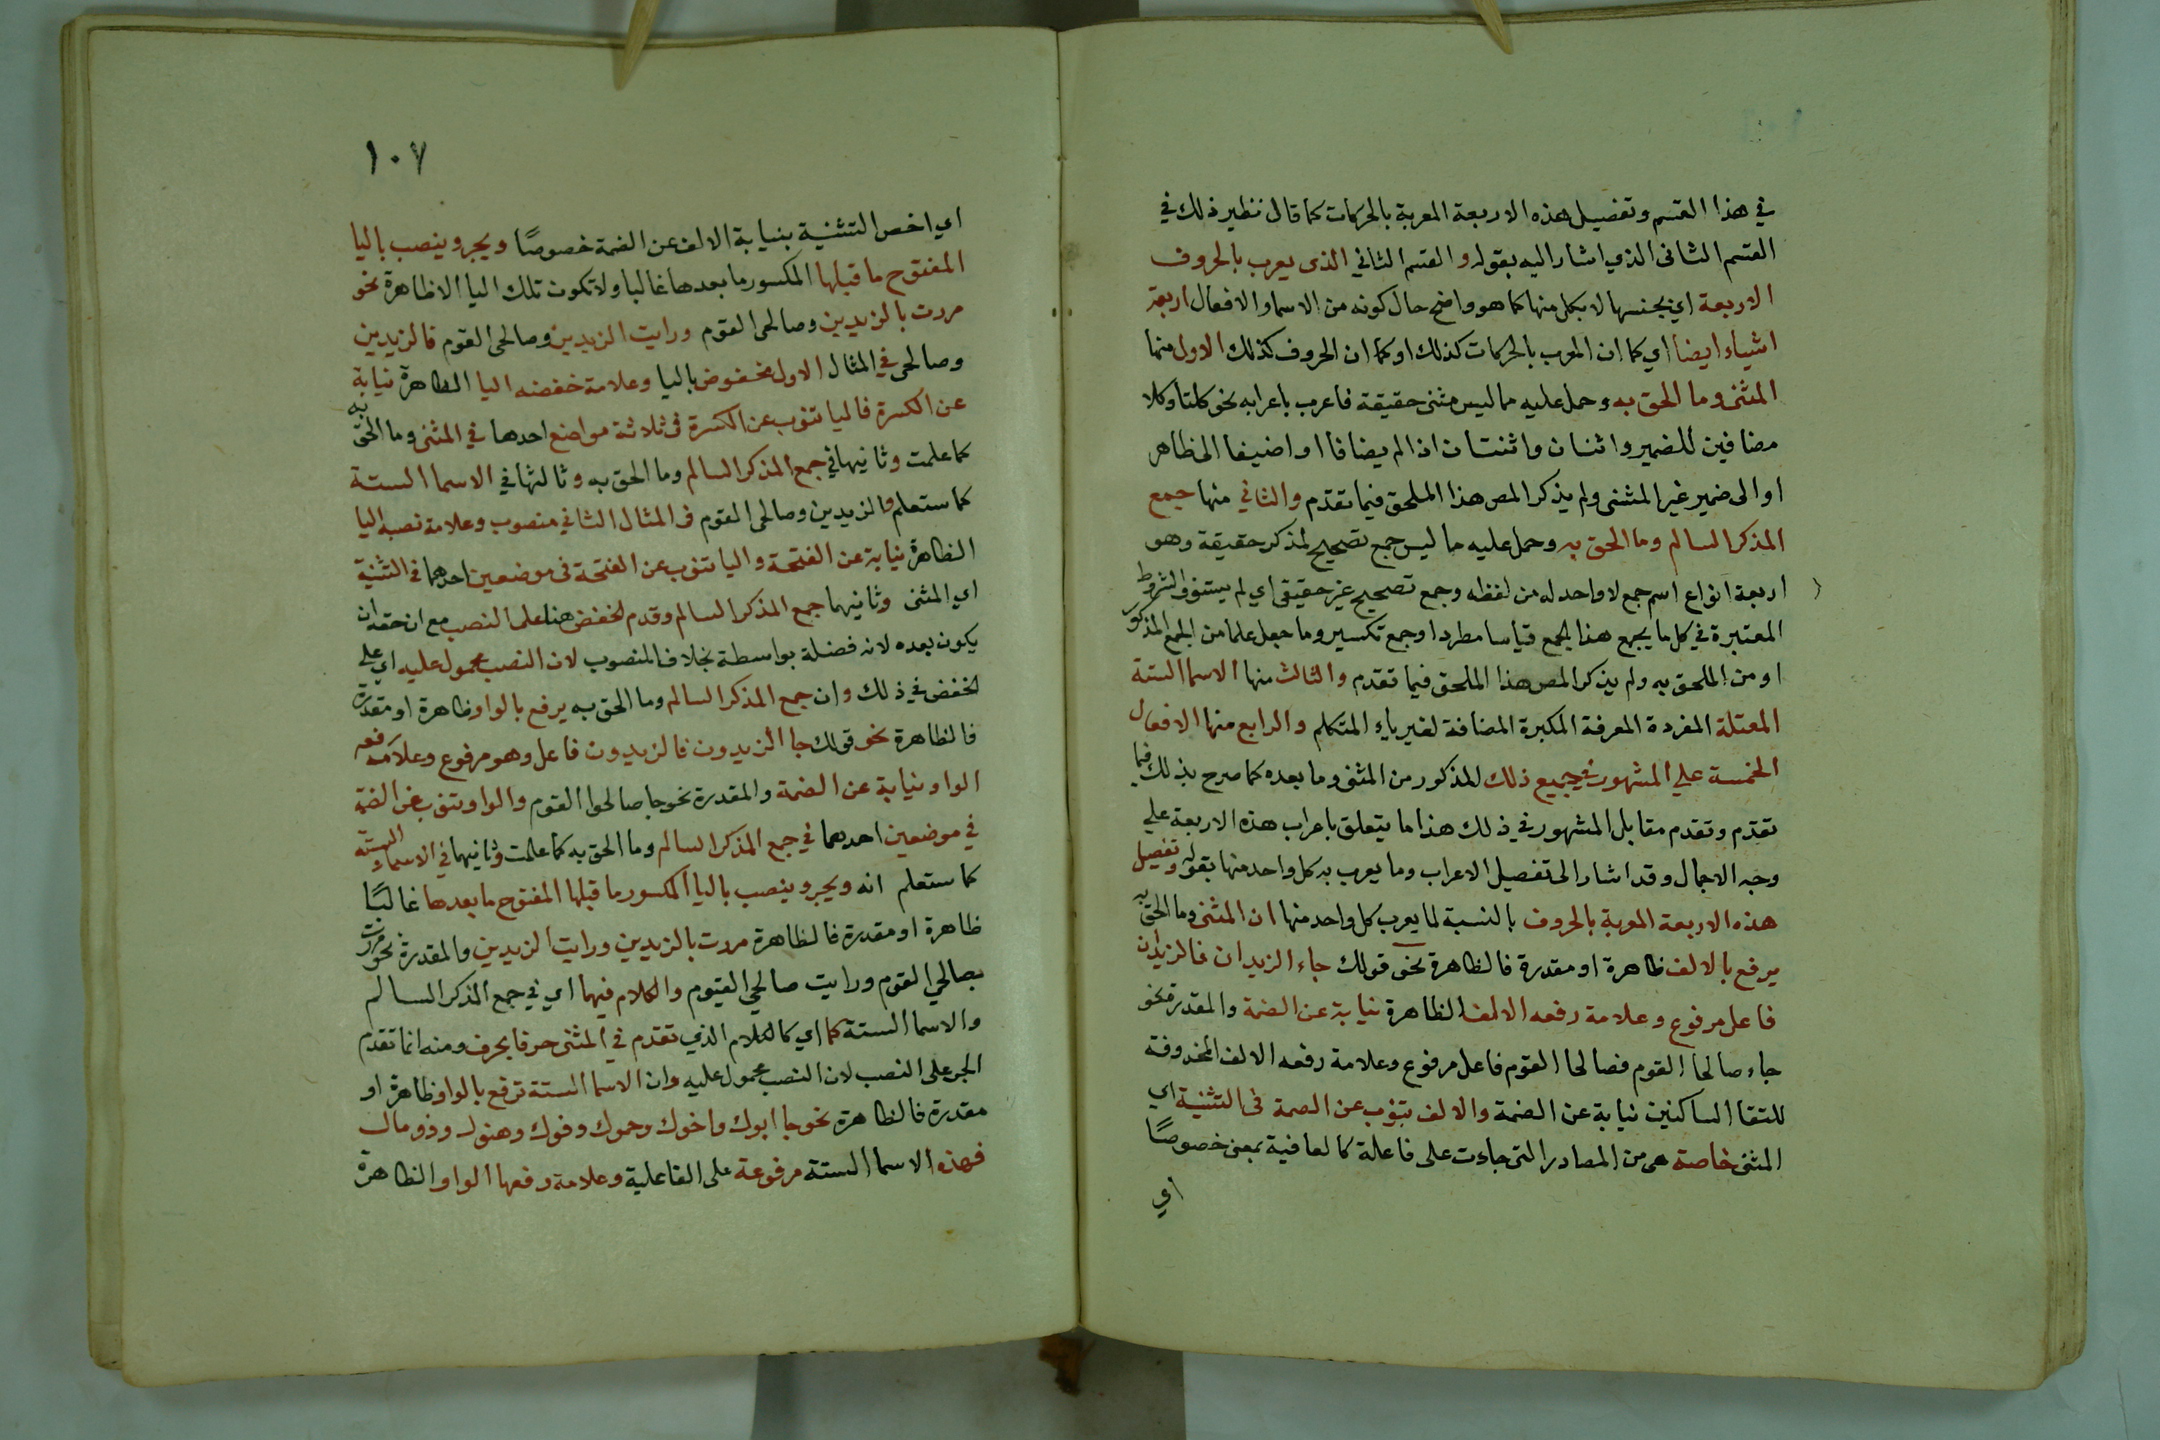 في هذا القسم وتفصيل هذه الاربعة المعربة بالحركات كما قال نظير ذلك في
القسم الثاني الذي اشار اليه بقوله والقسم الثاني الذى يعرب بالحروف
الاربعة اي بجنسها لا بكل منها كما هو واضح حال كونه من الاسما والافعال اربعة
اشياء ايضا اي كما ان المعرب بالحركات كذلك او كما ان الحروف كذلك الاول منها
المثنى وما الحق به وحمل عليه مما ليس مثنى حقيقة فاعرب باعرابه نحو كلتا وكلا
مضافين للضمير واثنان واثنتان اذا لم يضافا او اضيفا الى ظاهر
او الى ضمير غير المثنى ولم يذكر المص هذا الملحق فيما تقدم والثاني منها جمع
المذكر السالم وما الحق به وحمل عليه ما ليس جمع تصحيح لمذكر حقيقة وهو
اربعة انواع اسم جمع لا واحد له من لفظه وجمع تصحيح غير حقيقى اي لم يستوف الشروط
المعتبرة في كل ما يجمع هذا الجمع قياسا مطردا وجمع تكسير وما جعل علما من الجمع المذكور
او من الملحق به ولم يذكر المص هذا الملحق فيما تقدم والثالث منها الاسما الستة
المعتلة المفردة المعرفة المكبرة المضافة لغير ياء المتكلم والرابع منها الافعال
الخمسة علي المشهور في جميع ذلك المذكور من المثنى وما بعده كما صرح بذلك فيما
تقدم وتقدم مقابل المشهور في ذلك هذا ما يتعلق باعراب هذه الاربعة علي
وجه الاجمال وقد اشار الى تفصيل الاعراب وما يعرب به كل واحد منها بقوله وتفصيل
هذه الاربعة المعربة بالحروف بالنسبة لما يعرب كل واحد منها ان المثنى وما الحق به
يرفع بالالف ظاهرة او مقدرة فالظاهرة نحو قولك جاء الزيدان فالزيدان
فاعل مرفوع وعلامة رفعه الالف الظاهرة نيابة عن الضمة والمقدرة نحو
جاء صالحا القوم فصالحا القوم فاعل مرفوع وعلامة رفعه الالف المحذوفة
للتقا الساكنين نيابة عن الضمة والالف تنوب عن الضمة فى التثنية اي
المثنى خاصة هي من المصادر التى جاءت على فاعلة كالعافية بمعنى خصوصًا
اي
١٠٧
اي اخص التثنية بنيابة الالف عن الضمة خصوصًا ويجر وينصب باليا
المفتوح ما قبلها المكسور ما بعدها غالبا ولا تكون تلك اليا الا ظاهرة نحو
مررت بالزيدين وصالحى القوم ورايت الزيدين وصالحى القوم فالزيدين
وصالحى في المثال الاول مخفوض باليا وعلامة خفضه اليا الظاهرة نيابة
عن الكسرة فاليا تنوب عن الكسرة فى ثلاثة مواضع احدها في المثنى وما الحق به
كما علمت وثانيها في جمع المذكر السالم وما الحق به وثالثها في الاسما الستة
كما ستعلم فالزيدين وصالحى القوم فى المثال الثاني منصوب وعلامة نصبه اليا
الظاهرة نيابة عن الفتحة واليا تنوب عن الفتحة فى موضعين احدهما في التثنية
اي المثنى وثانيهما جمع المذكر السالم وقدم الخفض هنا علي النصب مع ان حقه ان
يكون بعده لانه فضلة بواسطة بخلاف المنصوب لان النصب محمول عليه اي علي
الخفض في ذلك وان جمع المذكر السالم وما الحق به يرفع بالواو ظاهرة او مقدرة
فالظاهرة نحو قولك جا الزيدون فالزيدون فاعل وهو مرفوع وعلامة رفعه
الواو نيابة عن الضمة والمقدرة نحو جا صالحوا القوم والواو تنوب عن الضمة
في موضعين احدهما في جمع المذكر السالم وما الحق به كما علمت وثانيها في الاسماء الستة
كما ستعلم انه ويجر وينصب باليا المكسور ما قبلها المفتوح ما بعدها غالبًا
ظاهرة او مقدرة فالظاهرة مررت بالزيدين ورايت الزيدين والمقدرة نحو مررت
بصالحي القوم ورايت صالحي القوم والكلام فيهما اي في جمع المذكر السالم
والاسما الستة كما اي كالكلام الذي تقدم في المثنى حرفا بحرف ومنه انما تقدم
الجر على النصب لان النصب محمول عليه وان الاسما الستة ترفع بالواو ظاهرة او
مقدرة فالظاهرة نحو جا ابوك واخوك وحموك وفوك وهنوك وذو مال
فهذه الاسما الستة مرفوعة على الفاعلية وعلامة رفعها الواو الظاهرة